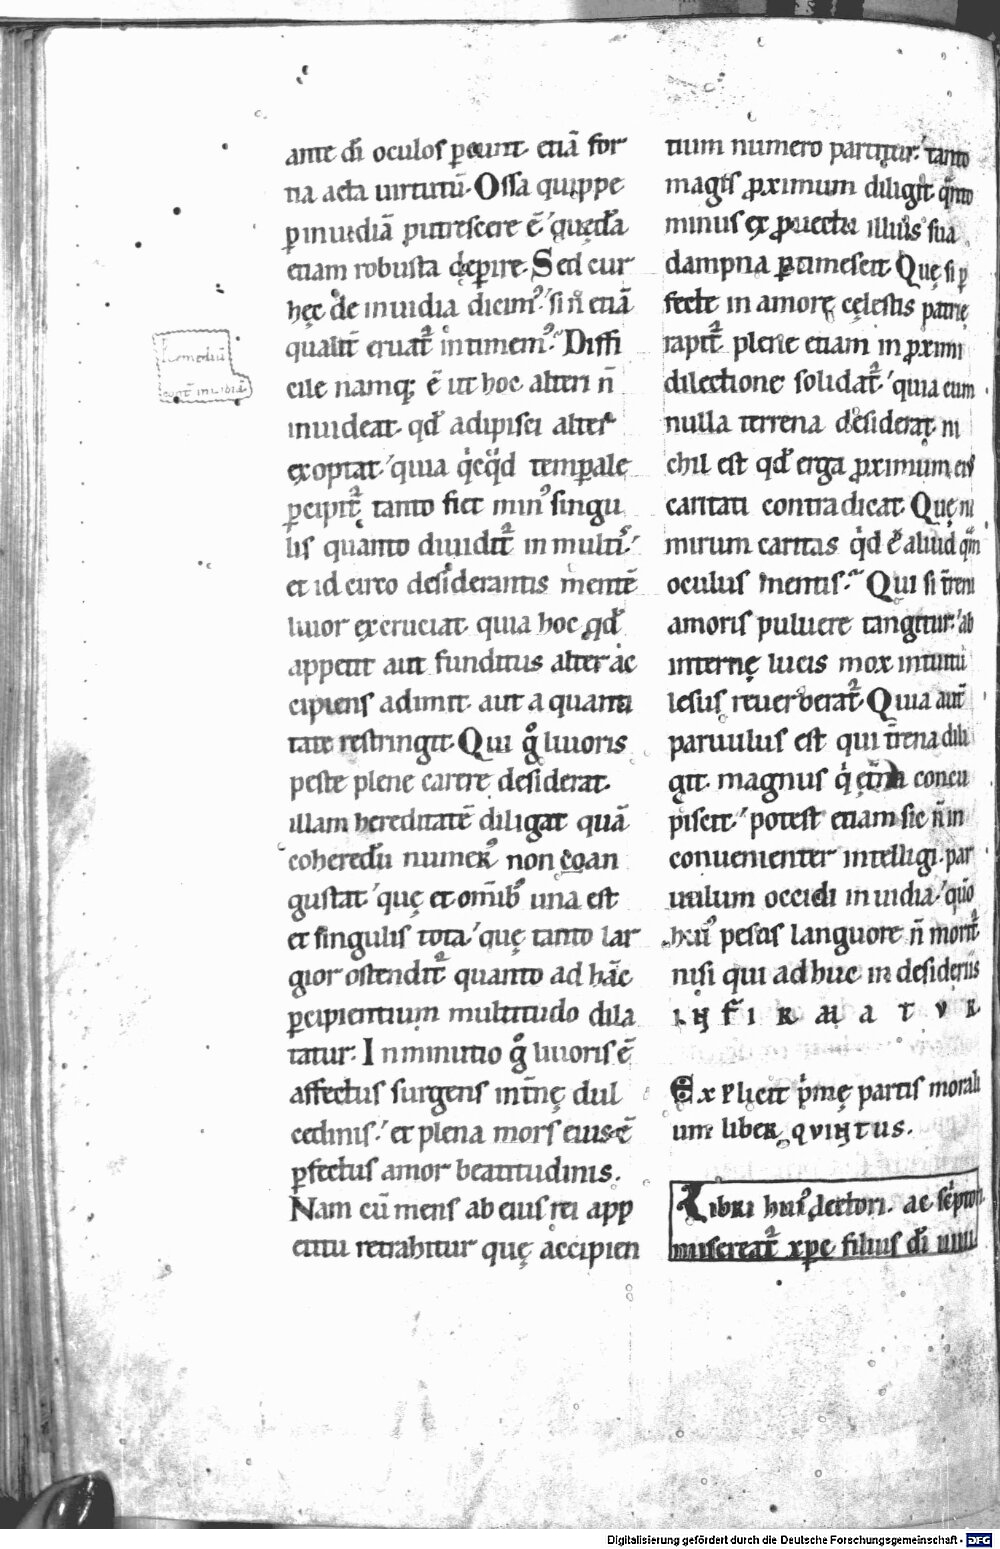 ante dī oculos p̄eunt. etiā for
tia acta uirtutū. Ossa quippe
p̱ inuidiā putrescere ē ́ quędā
etiam robusta depire. Sed cur
hęc de inuidia dicimꝰ ́ si n̄ etiā
qualit̄ eruat᷑ intimemꝰ. Diffi
cile namq; ē ut hoc alteri n̄
inuideat. qd̄ adipisci alter
exoptat ́ quia qͥcqͥd temp̱ale
p̱cipit᷑ tanto fiet minꝰ singu
lis quanto diuidit᷑ in multis ́
et idcirco desiderantis mentē
liuor excruciat. quia hoc qd̄
appetit aut funditus alter ac
cipiens adimit. aut a quanti
tate restringit. Qui gͦ liuoris
peste plene carere desiderat.
illam hereditatē diligat quā
coheredū numerꝰ non coan
gustat ́ quę et om̄ibꝰ una est
et singulis tota ́ quę tanto lar
gior ostendit᷑ quanto ad hāc
p̱cipientium multitudo dila
tatur. Inminutio gͦ liuoris ē
affectus surgens int̄nę dul
cedinis ́ et plena mors eius ē
p̱fectus amor beatitudinis.
Nam cū mens ab eius rei app
etitu retrahitur quę accipien
Remediū
cont̄ inuidiā
tium numero partitur ́ tanto
magis ꝓximum diligit. qn̄to
minus ex ꝓuectu illius sua
dampna p̱timescit. Quę si p̱
fecte in amorę cęlestis patrię
rapit᷑ plene etiam in ꝓximi
dilectione solidat᷑ ́ quia cum
nulla terrena desiderat. ni
chil est qd̄ erga ꝓximum eiꝰ
caritati contradicat. Quę ni
mirum caritas qͥd ē aliud qm̄
oculus mentis. Qui si t̄reni
amoris puluere tangitur ́ ab
internę lucis mox intuitu
lesus reuerberat᷑. Quia aut̄
paruulus est qui t̄rena dili
git. magnus qͥ et̄na concu
piscit ́ potest etiam sic n̄ in
conuenienter intelligi. par
uulum occidi inuidia ́ quo
huiꝰ pestis languore n̄ morit᷑
nisi qui adhuc in desideriis
INFIRMATVR
Explicit pͥmę partis morali
um liber qvintus.
Libri huiꝰ lectori. ac sc̄ptori.
misereat᷑ xp̄e filius dī uiui.
Digitalisierung gefördert durch die Deutsche Forschungsgemeinschaft - DFG